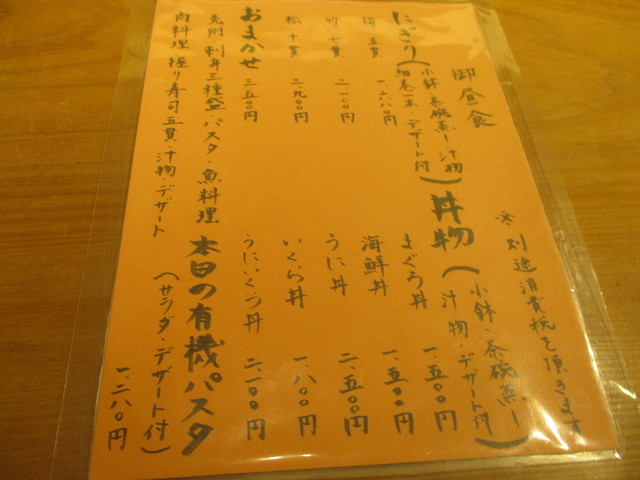 御昼食
にぎり(小鉢・茶碗蒸し・汁物
細巻一本・デザート付)
梅 五貫 一、六八〇円
竹 七貫 二、一〇〇円
松 十貫 二、九〇〇円
おまかせ 三、五〇〇円
先附 刺身三種盛 パスタ・魚料理
肉料理 握り寿司五貫・汁物・デザート
※別途消費税を頂きます
丼物(小鉢・茶碗蒸し
汁物・デザート付)
まぐろ丼 一、五〇〇円
海鮮丼 一、五〇〇円
うに丼 二、五〇〇円
いくら丼 一、八〇〇円
うにいくら丼 二、一〇〇円
本日の有機パスタ
(サラダ・デザート付)
一、二八〇円